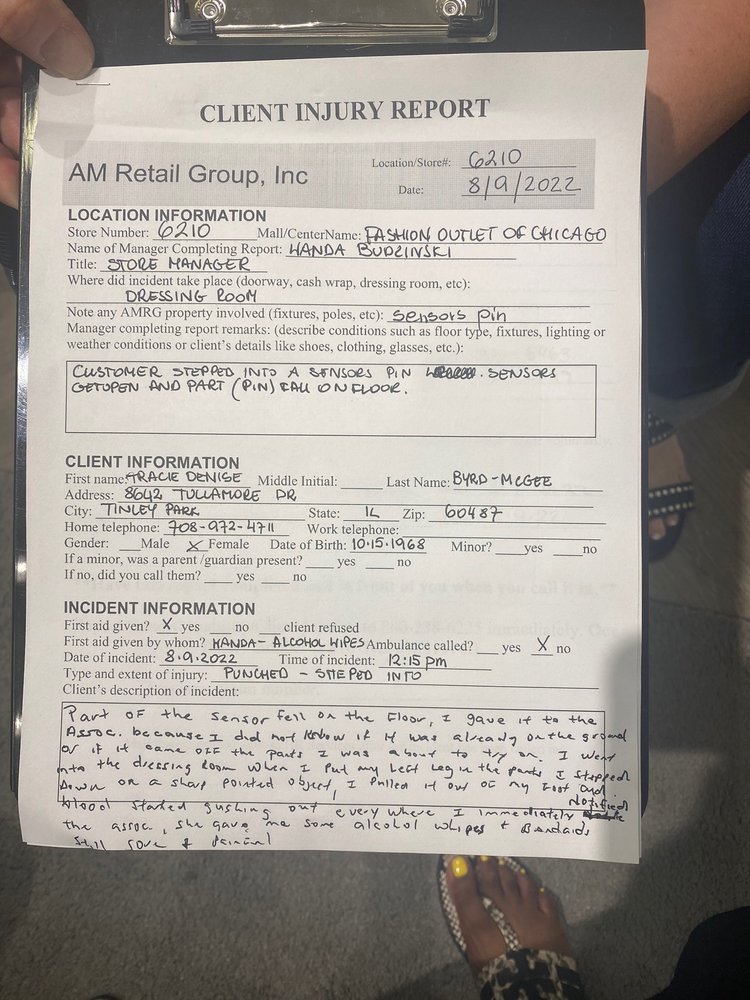 CLIENT INJURY REPORT
AM Retail Group, Inc
Location/Store#: 6210
Date: 8/9/2022
LOCATION INFORMATION
Store Number: 6210 Mall/CenterName: FASHION OUTLET OF CHICAGO
Name of Manager Completing Report: WANDA BUDZINSKI
Title: STORE MANAGER
Where did incident take place (doorway, cash wrap, dressing room, etc):
DRESSING ROOM
Note any AMRG property involved (fixtures, poles, etc): sensors pin
Manager completing report remarks: (describe conditions such as floor type, fixtures, lighting or
weather conditions or client's details like shoes, clothing, glasses, etc.):
CUSTOMER STEPPED INTO A SENSORS PIN . SENSORS
GETOPEN AND PART (PIN) FALL ON FLOOR.
CLIENT INFORMATION
First name: TRACIE DENISE Middle Initial: Last Name: BYRD-MCGEE
Address: 8642 TULLAMORE DR
City: TINLEY PARK State: IL Zip: 60487
Home telephone: 708-972-4711 Work telephone:
Gender: Male X Female Date of Birth: 10.15.1968 Minor? yes no
If a minor, was a parent /guardian present? yes no
If no, did you call them? yes no
INCIDENT INFORMATION
First aid given? X yes no client refused
First aid given by whom? WANDA- ALCOHOL WIPES Ambulance called? yes X no
Date of incident: 8.9.2022 Time of incident: 12:15 pm
Type and extent of injury: PUNCHED - STEPED INTO
Client's description of incident:
Part of the sensor fell on the Floor, I gave it to the
Assoc. because I did not know if it was already on the ground
or if it came off the pants I was about to try on. I went
into the dressing room when I put my Left Leg in the pants I stepped
down on a sharp pointed object, I pulled it out of my foot and
blood started gushing out every where I immediately Notified
the assoc., she gave me some alcohol whipes + Bandaids
still sore & painful